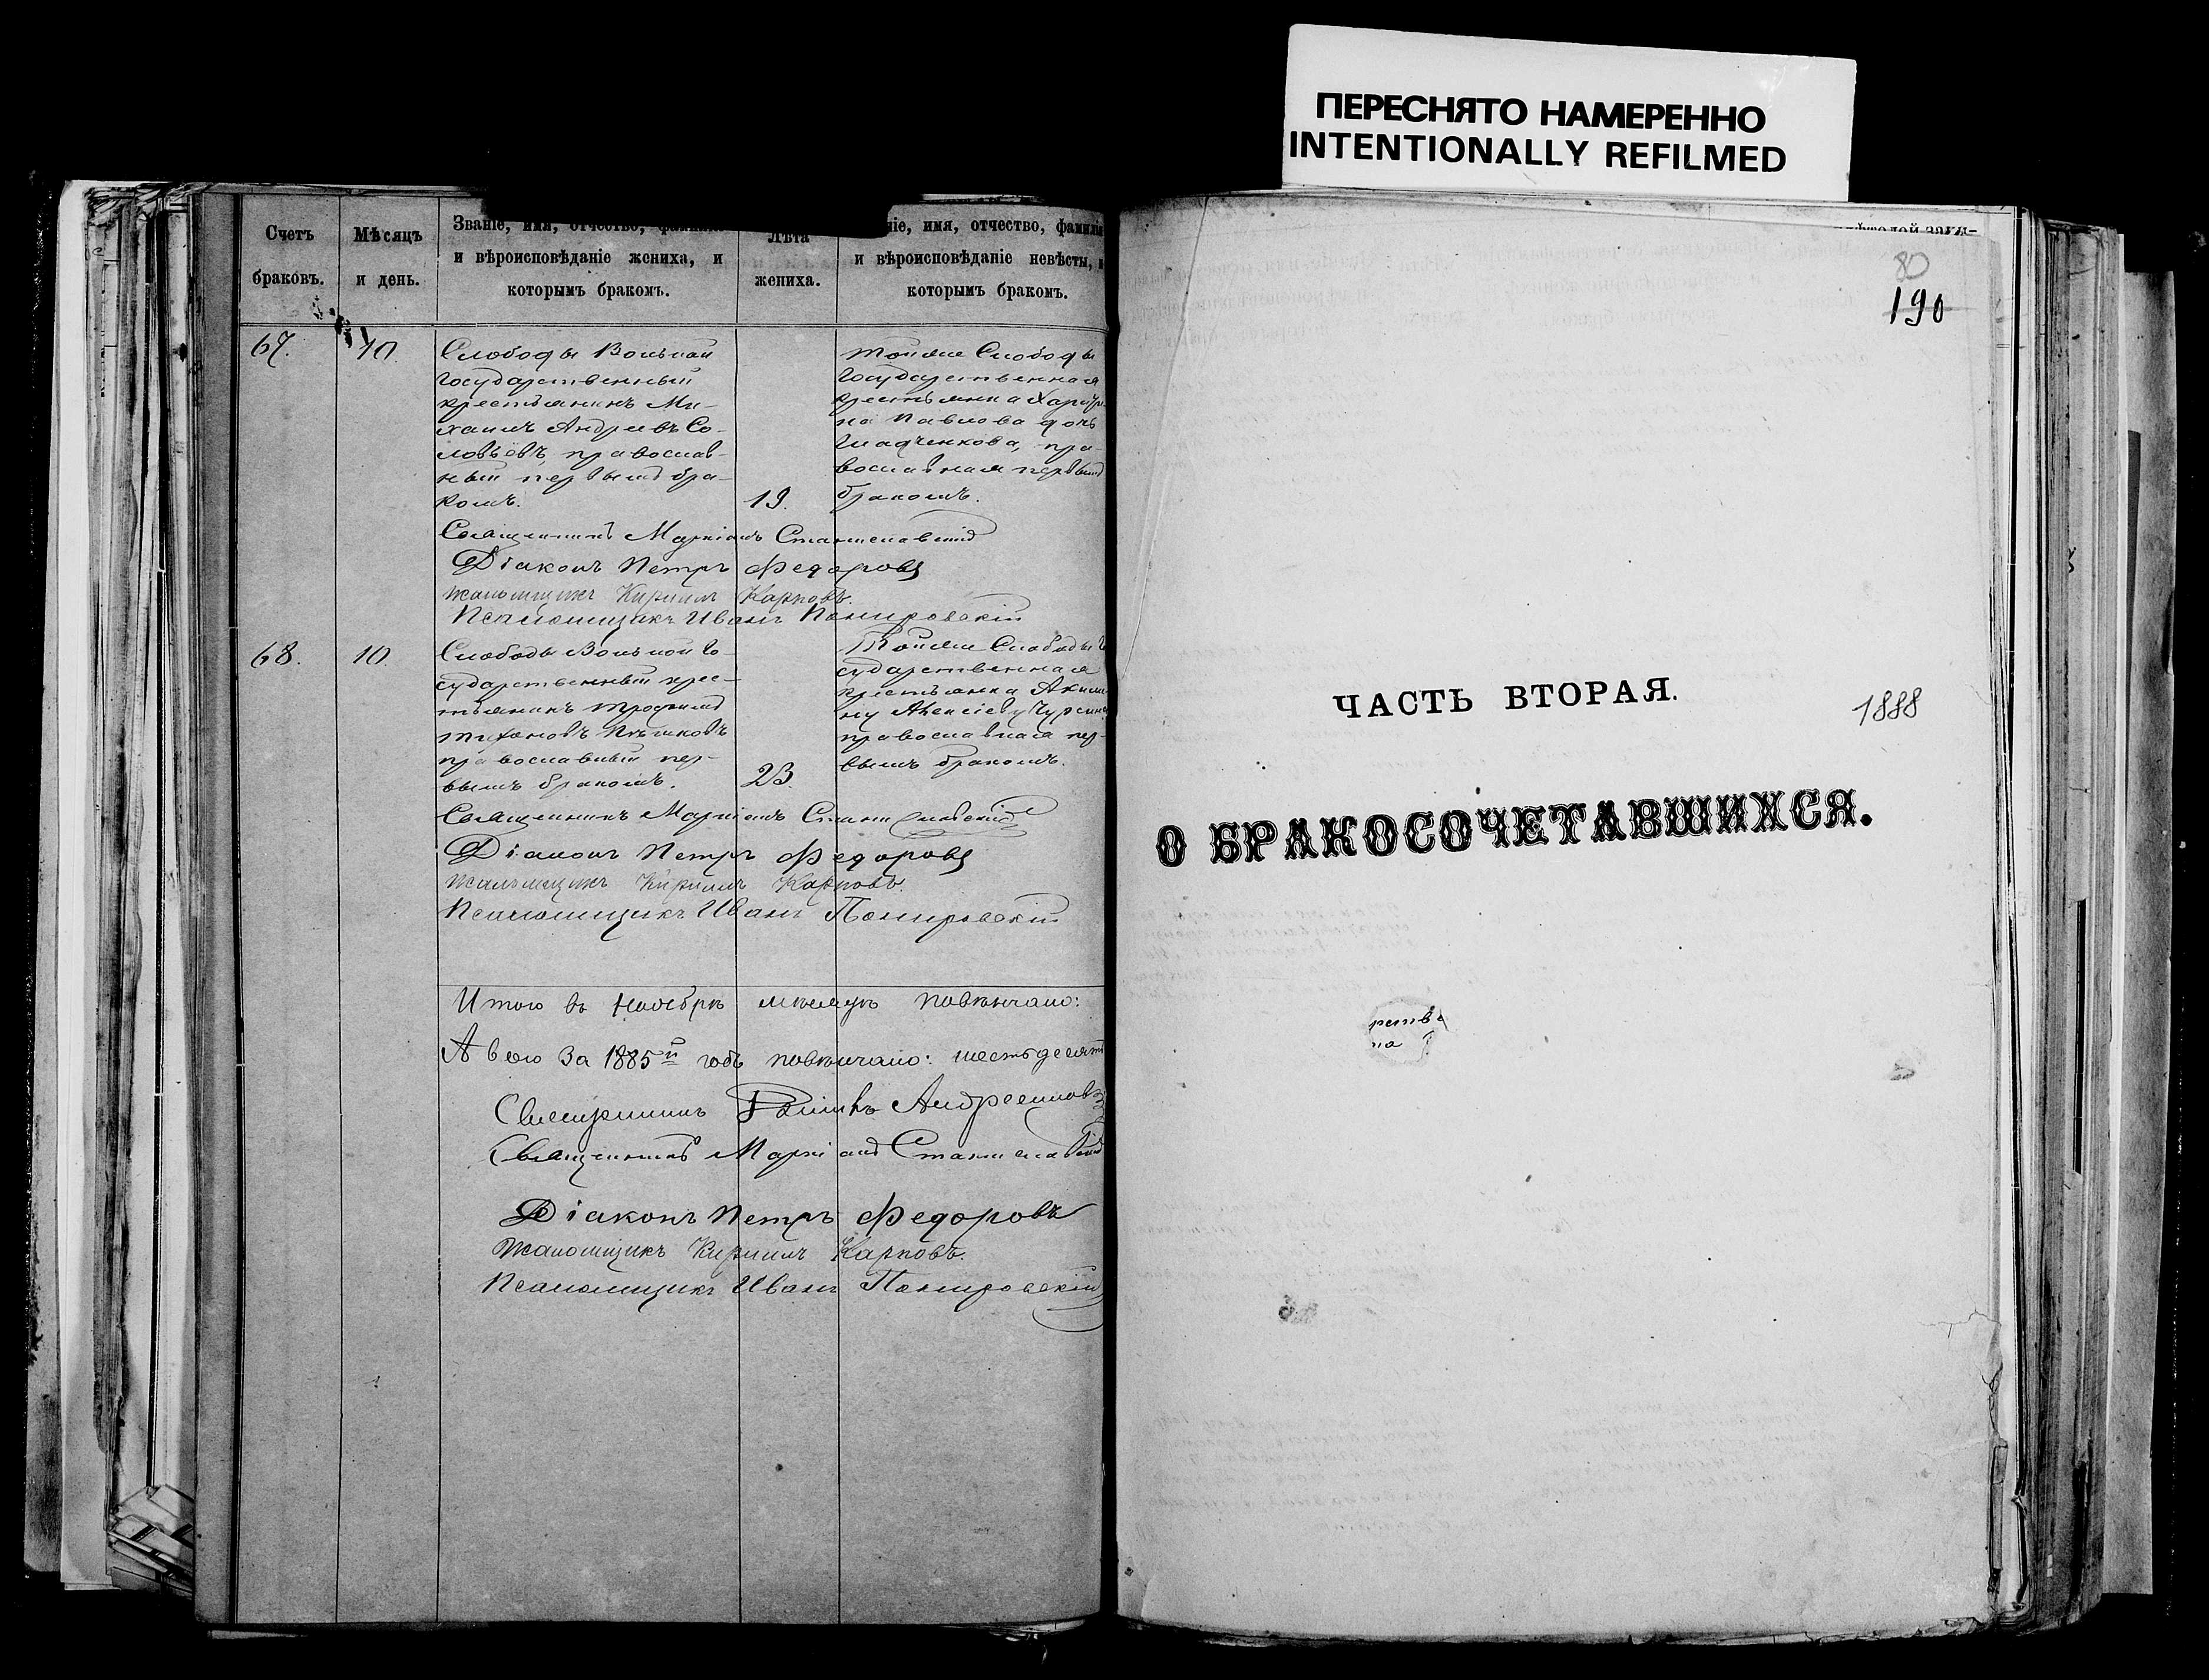 ПЕРЕСНЯТО НАМЕРЕННО
INTENTIONALLY REFILMED
Счетъ
браковъ.
Мѣсяцъ
и день.
Званіе, имя, отчество,
и вѣроисповѣданіе жениха, и
которымъ бракомъ.
Лѣта
жениха.
ніе, имя, отчество, фамилія
и вѣроисповѣданіе невѣсты, и
которымъ бракомъ.
67.
10.
Слободы Вольной
государственный
крестьянинъ Ми-
хаилъ Андреевъ Со-
ловьевъ, православ-
ный первымъ бра-
комъ.
19.
Тойже Слободы
Государственная
крестьянка
на Павлова дочь
пра-
вославная первымъ
бракомъ.
Священникъ Маркіанъ Станиславскій
Діаконъ Петръ Федоровъ
Псаломщикъ Кириллъ Карповъ.
Псаломщикъ Иванъ
68.
10
Слободы Вольной го-
сударственный крес-
тьянинъ Трофимъ
Тихоновъ
православный пер-
вымъ бракомъ.
23.
Тойже Слободы го
сударственная
крестьянка Акили
ну Алексіеву
православная пер-
вымъ бракомъ.
Священникъ Маркіанъ Станиславскій
Діаконъ Петръ Федоровъ
Псаломщикъ Кириллъ Карповъ.
Псаломщикъ Иванъ
Итого въ Ноябрѣ мѣсяцѣ повѣнчано:
А всего за 1885й годъ повѣнчано: шестьдесятъ
Священникъ
Священникъ Маркіанъ Станиславскій
Діаконъ Петръ Федоровъ
Псаломщикъ Кириллъ Карповъ.
Псаломщикъ Иванъ
80
190
ЧАСТЬ ВТОРАЯ.
1888
О БРАКОСОЧЕТАВШИХСЯ.